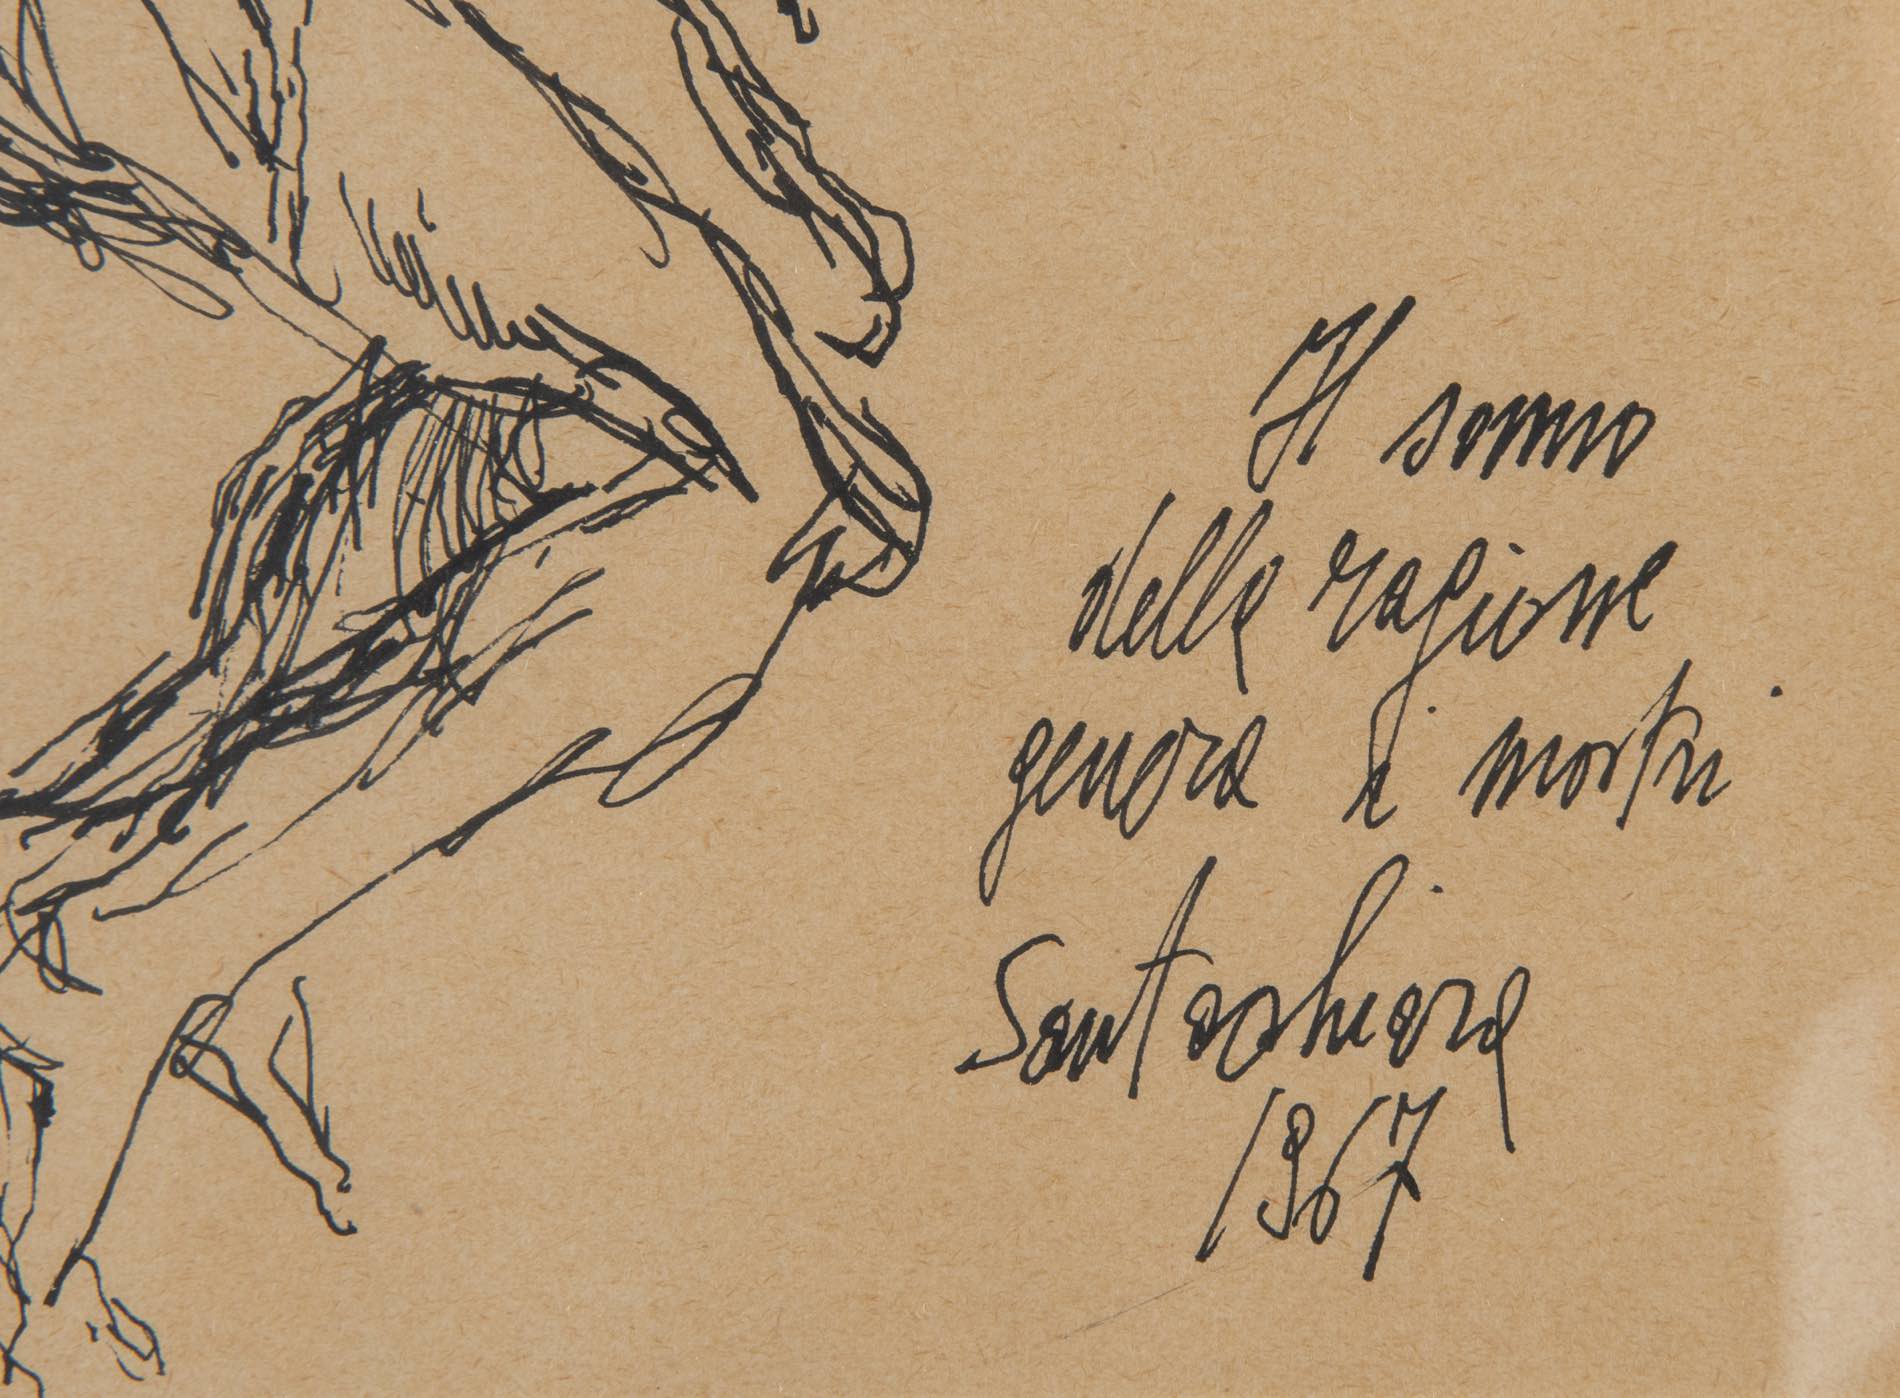 Il sonno
della ragione
genera i mostri
Santachiara
1967